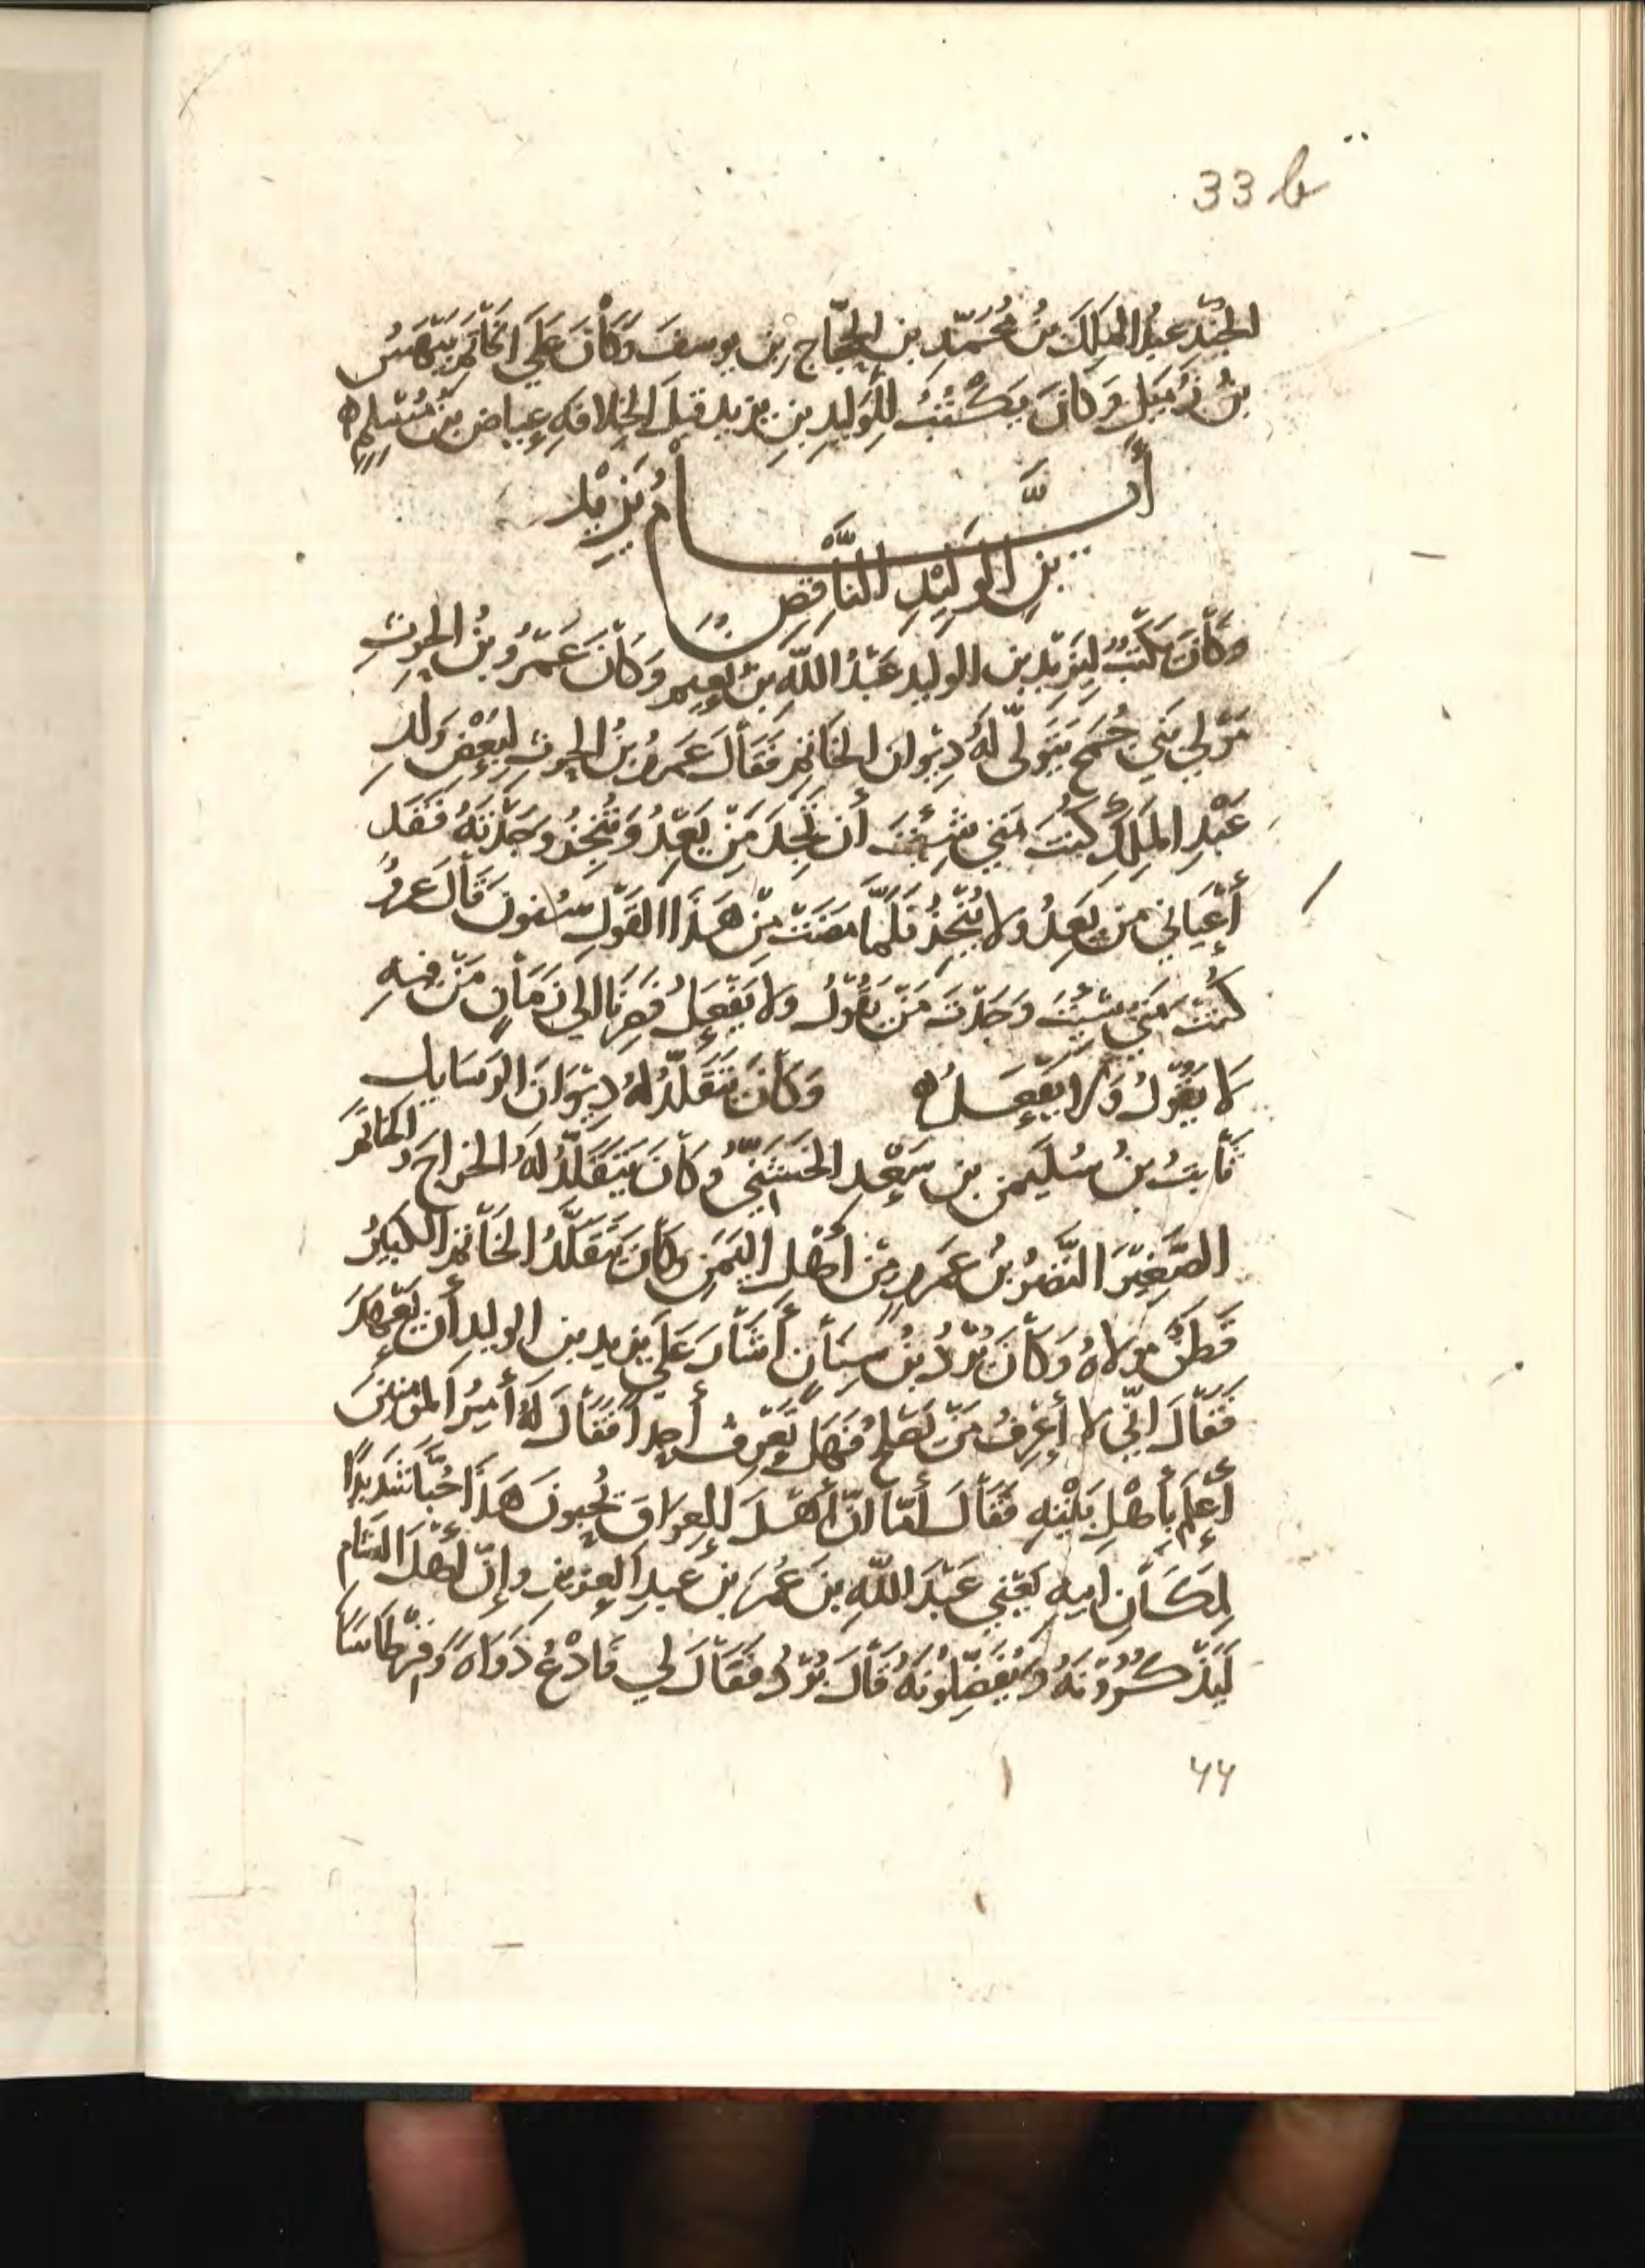 33 b
الجُند عبدُ الملِك بنُ مُحَمّدِ بنِ الحجّاج بن يوسفَ وَكَانَ عَلَي الخَاتَمِ بَيْهَسُ
بنُ زُمَيلٍ وَكَانَ يَكْتُبُ لِلوَليدِ بنِ يزيد قبلَ الخِلافَةِ عِياضُ بنُ مُسْلِمٍ ه
أَيَّـــــامُ يَزِيْدِ
بنِ الوَلِيْدِ النَّاقِصِ
وكَانَ يَكتُبُ لِيَزِيْدِ بن الوليد عَبْدُ اللّهِ بنُ نُعيمٍ وَكَانَ عَمْرُو بنُ الحرثِ
مَوْلي بَني جُمَحٍ يَتَولَّى لَهُ دِيْوان الخَاتمِ فَقَالَ عَمرُو بنُ الحرثِ لِبَعْضِ وَلَدِ
عَبْدِ المَلِكِ كُنتَ مَتي شِئْتَ أن تَجِدَ مَنْ يَعِدُ وَيُنجِزُ وَجَدْتَهُ فَقَد
أَعْيَاني مَن يَعِدُ ولا يُنْجِزُ فَلَمَّا مَضَتْ مِنْ هَذَا القَوْلِ سُنونَ قَالَ عَمرٌو
كُنتَ مَتَي شِئْتَ وَجَدْتَ مَنْ يَقُوْلُ ولا يَفْعَلُ فَصِرْنَا الي زَمَانٍ مَنْ فيهِ
لا يَقُوْلُ وَلا يَفْعَـلُ ه وَكَانَ يَتَقَلَّدُ لهُ دِيْوَانَ الرّسَايلِ
ثَابتُ بنُ سُلَيمن بن سَعْدٍ الخُشَنيُّ وَكَانَ يَتَقَلَّدُ لَهُ الخراجَ وَالخَاتمَ
الصَّغِيْرَ النَّضرُ بنُ عَمرٍو مِنْ أَهْلِ اليَمَنِ وَكَانَ يَتَقَلَّدُ الخَاتمَ الكبيرَ
قَطَنٌ مولاهُ وَكَانَ بُرْدُ بنُ سِنَانٍ أَشَارَ عَلَي يزيد بن الوليد أن يَعْهَدَ
فَقَالَ انّي لا أعرِفُ مَنْ يَصْلُحُ فَهَل تَعْرِفُ أحداً فَقَالَ لَهُ أَمِيْرُ المؤمنينَ
أَعْلمُ بأَهْلِ بَيْتِهِ فَقَالَ أمَا انّ أَهْلَ العِرَاقِ يُحِبونَ هَذَا حُبًّا شَدِيدًا
لِمكَانِ ابيهِ يَعْني عَبْدَ اللّهِ بنَ عُمَرَ بنِ عَبدِ العَزيزِ وإنّ أهْلَ الشَام
لَيَذْكُرُوْنَهُ وَيُفَضِّلونَهُ قَالَ بُرْدٌ فَقَالَ لي فَادْعُ دَوَاةً وَقِرْطَاسًا
44